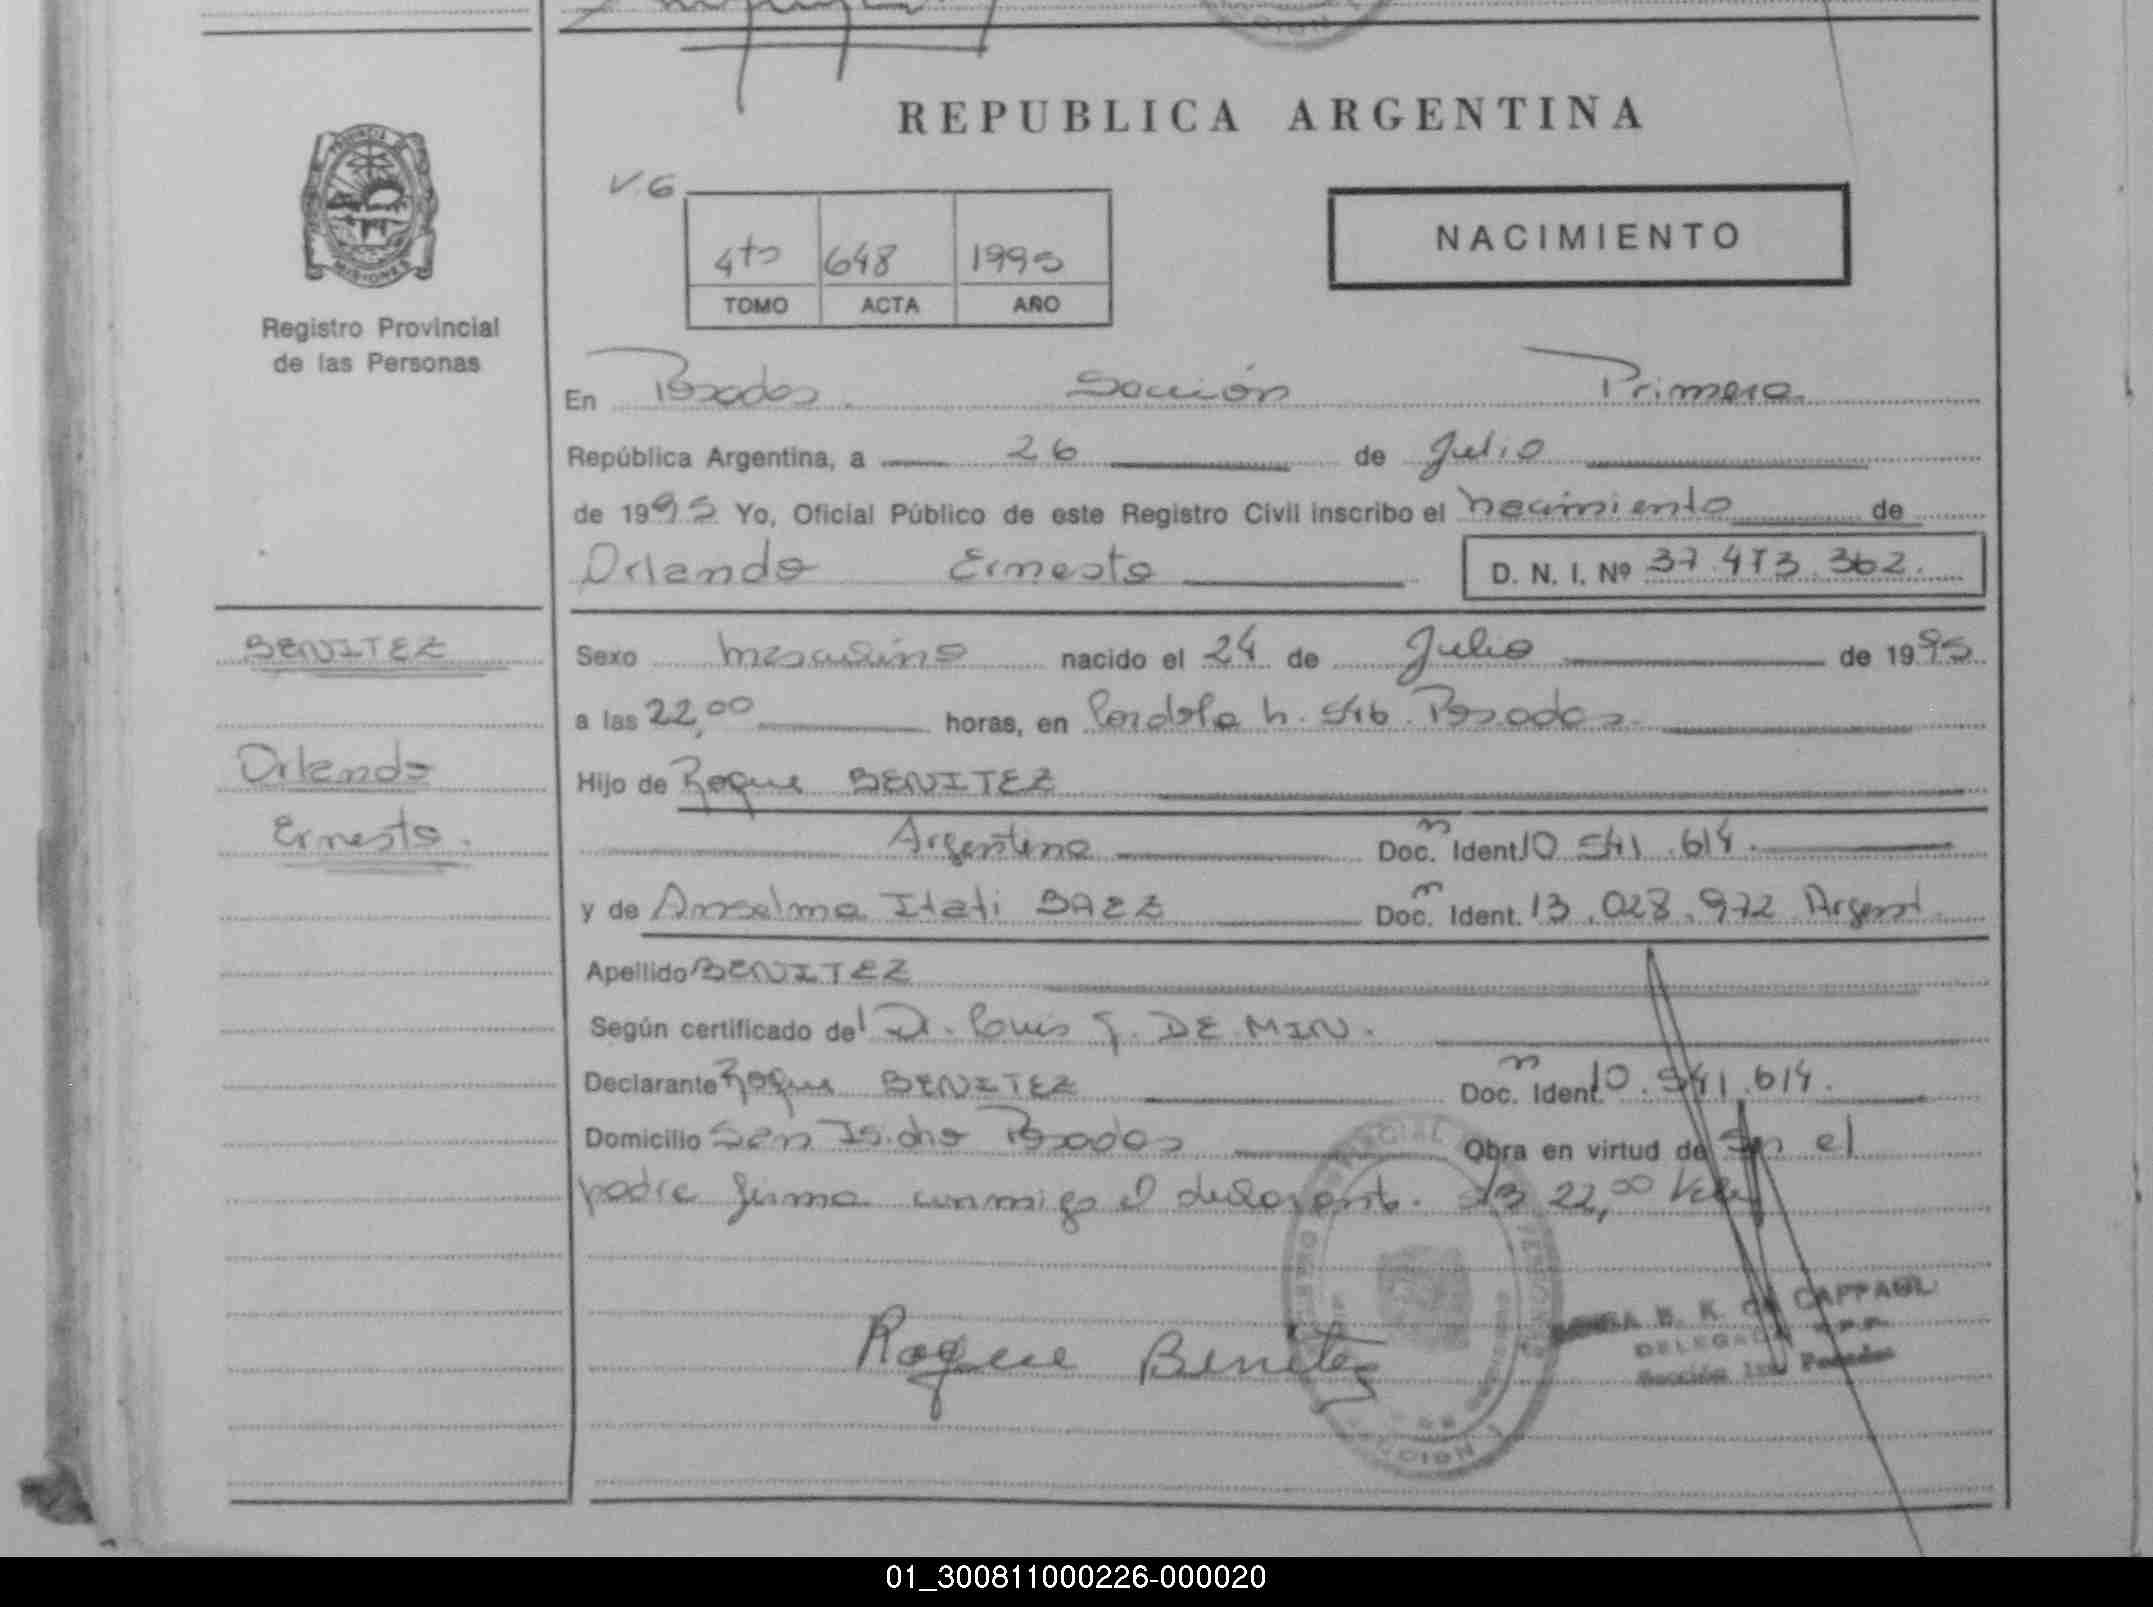 REPUBLICA ARGENTINA
V. G
4to 648 1995
TOMO ACTA AÑO
NACIMIENTO
PROVINCIA DE
MISIONES
Registro Provincial
de las Personas
En Posadas. Sección Primera
República Argentina, a 26 de Julio
de 1995 Yo, Oficial Público de este Registro Civil inscribo el nacimiento de
Orlando Ernesto D. N. I. Nº 37.413.362.
BENITEZ
Orlando
Ernesto.
Sexo masculino nacido el 24 de Julio de 1995
a las 22,00 horas, en Cordoba n. 546. Posadas
Hijo de Roque BENITEZ
Argentino Doc. n Ident. 10.541.614.
y de Anselma Itati BAEZ Doc. n Ident. 13.028.972 Argent.
Apellido BENITEZ
Según certificado del Dr. Louis J. DE MIN.
Declarante Roque BENITEZ Doc. n Ident. 10.541.614.
Domicilio San Isidro Posadas Obra en virtud de Ser el
padre firma conmigo el declarant. 22,00
Roque Benitez
CAPPAUL
DELEGADA
Sección 1ra Posadas
SECCION 1
01_300811000226-000020